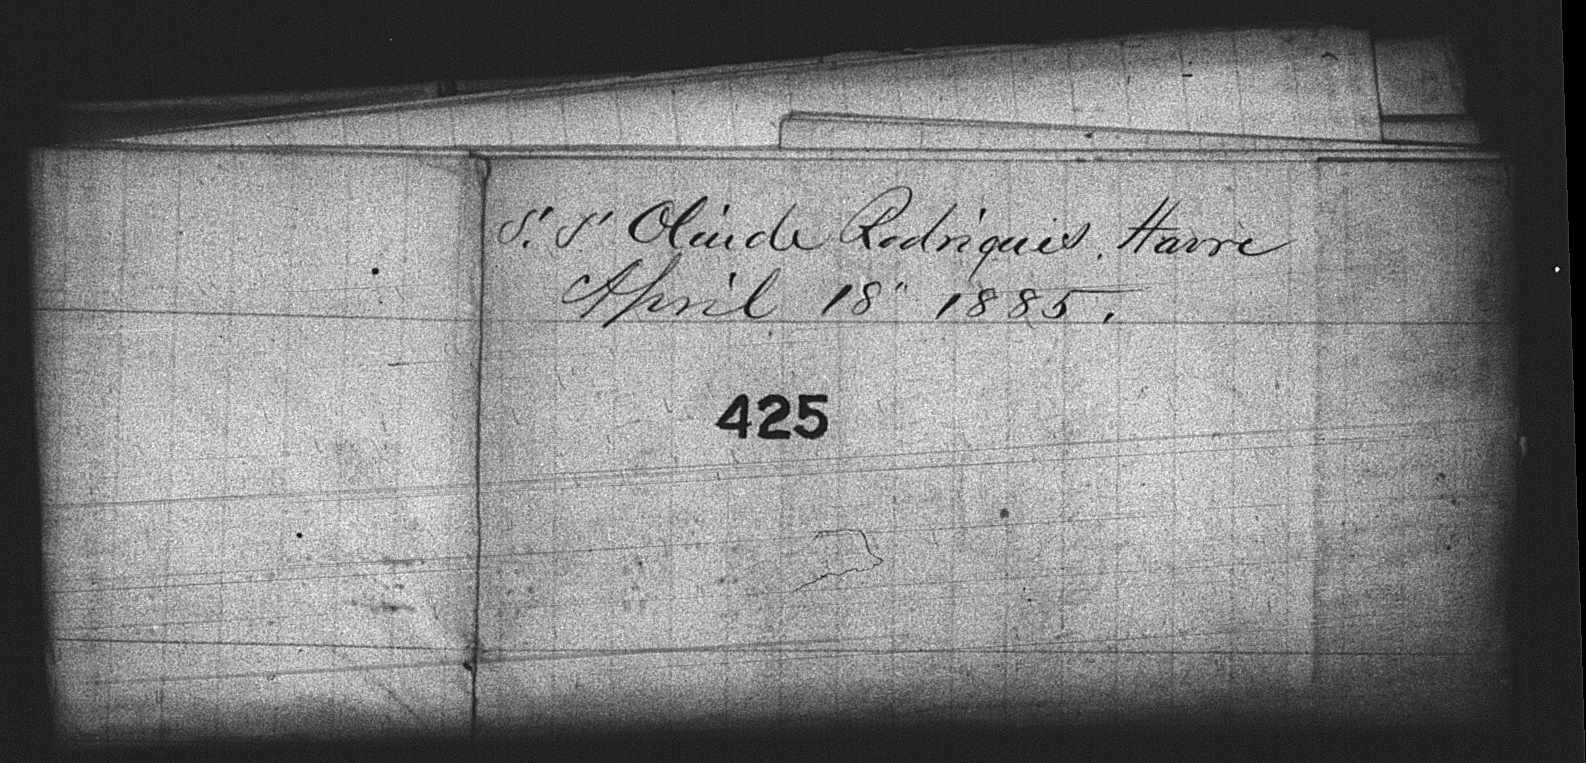 S. S Olinde Rodrigues. Havre
April 18" 1885.
425